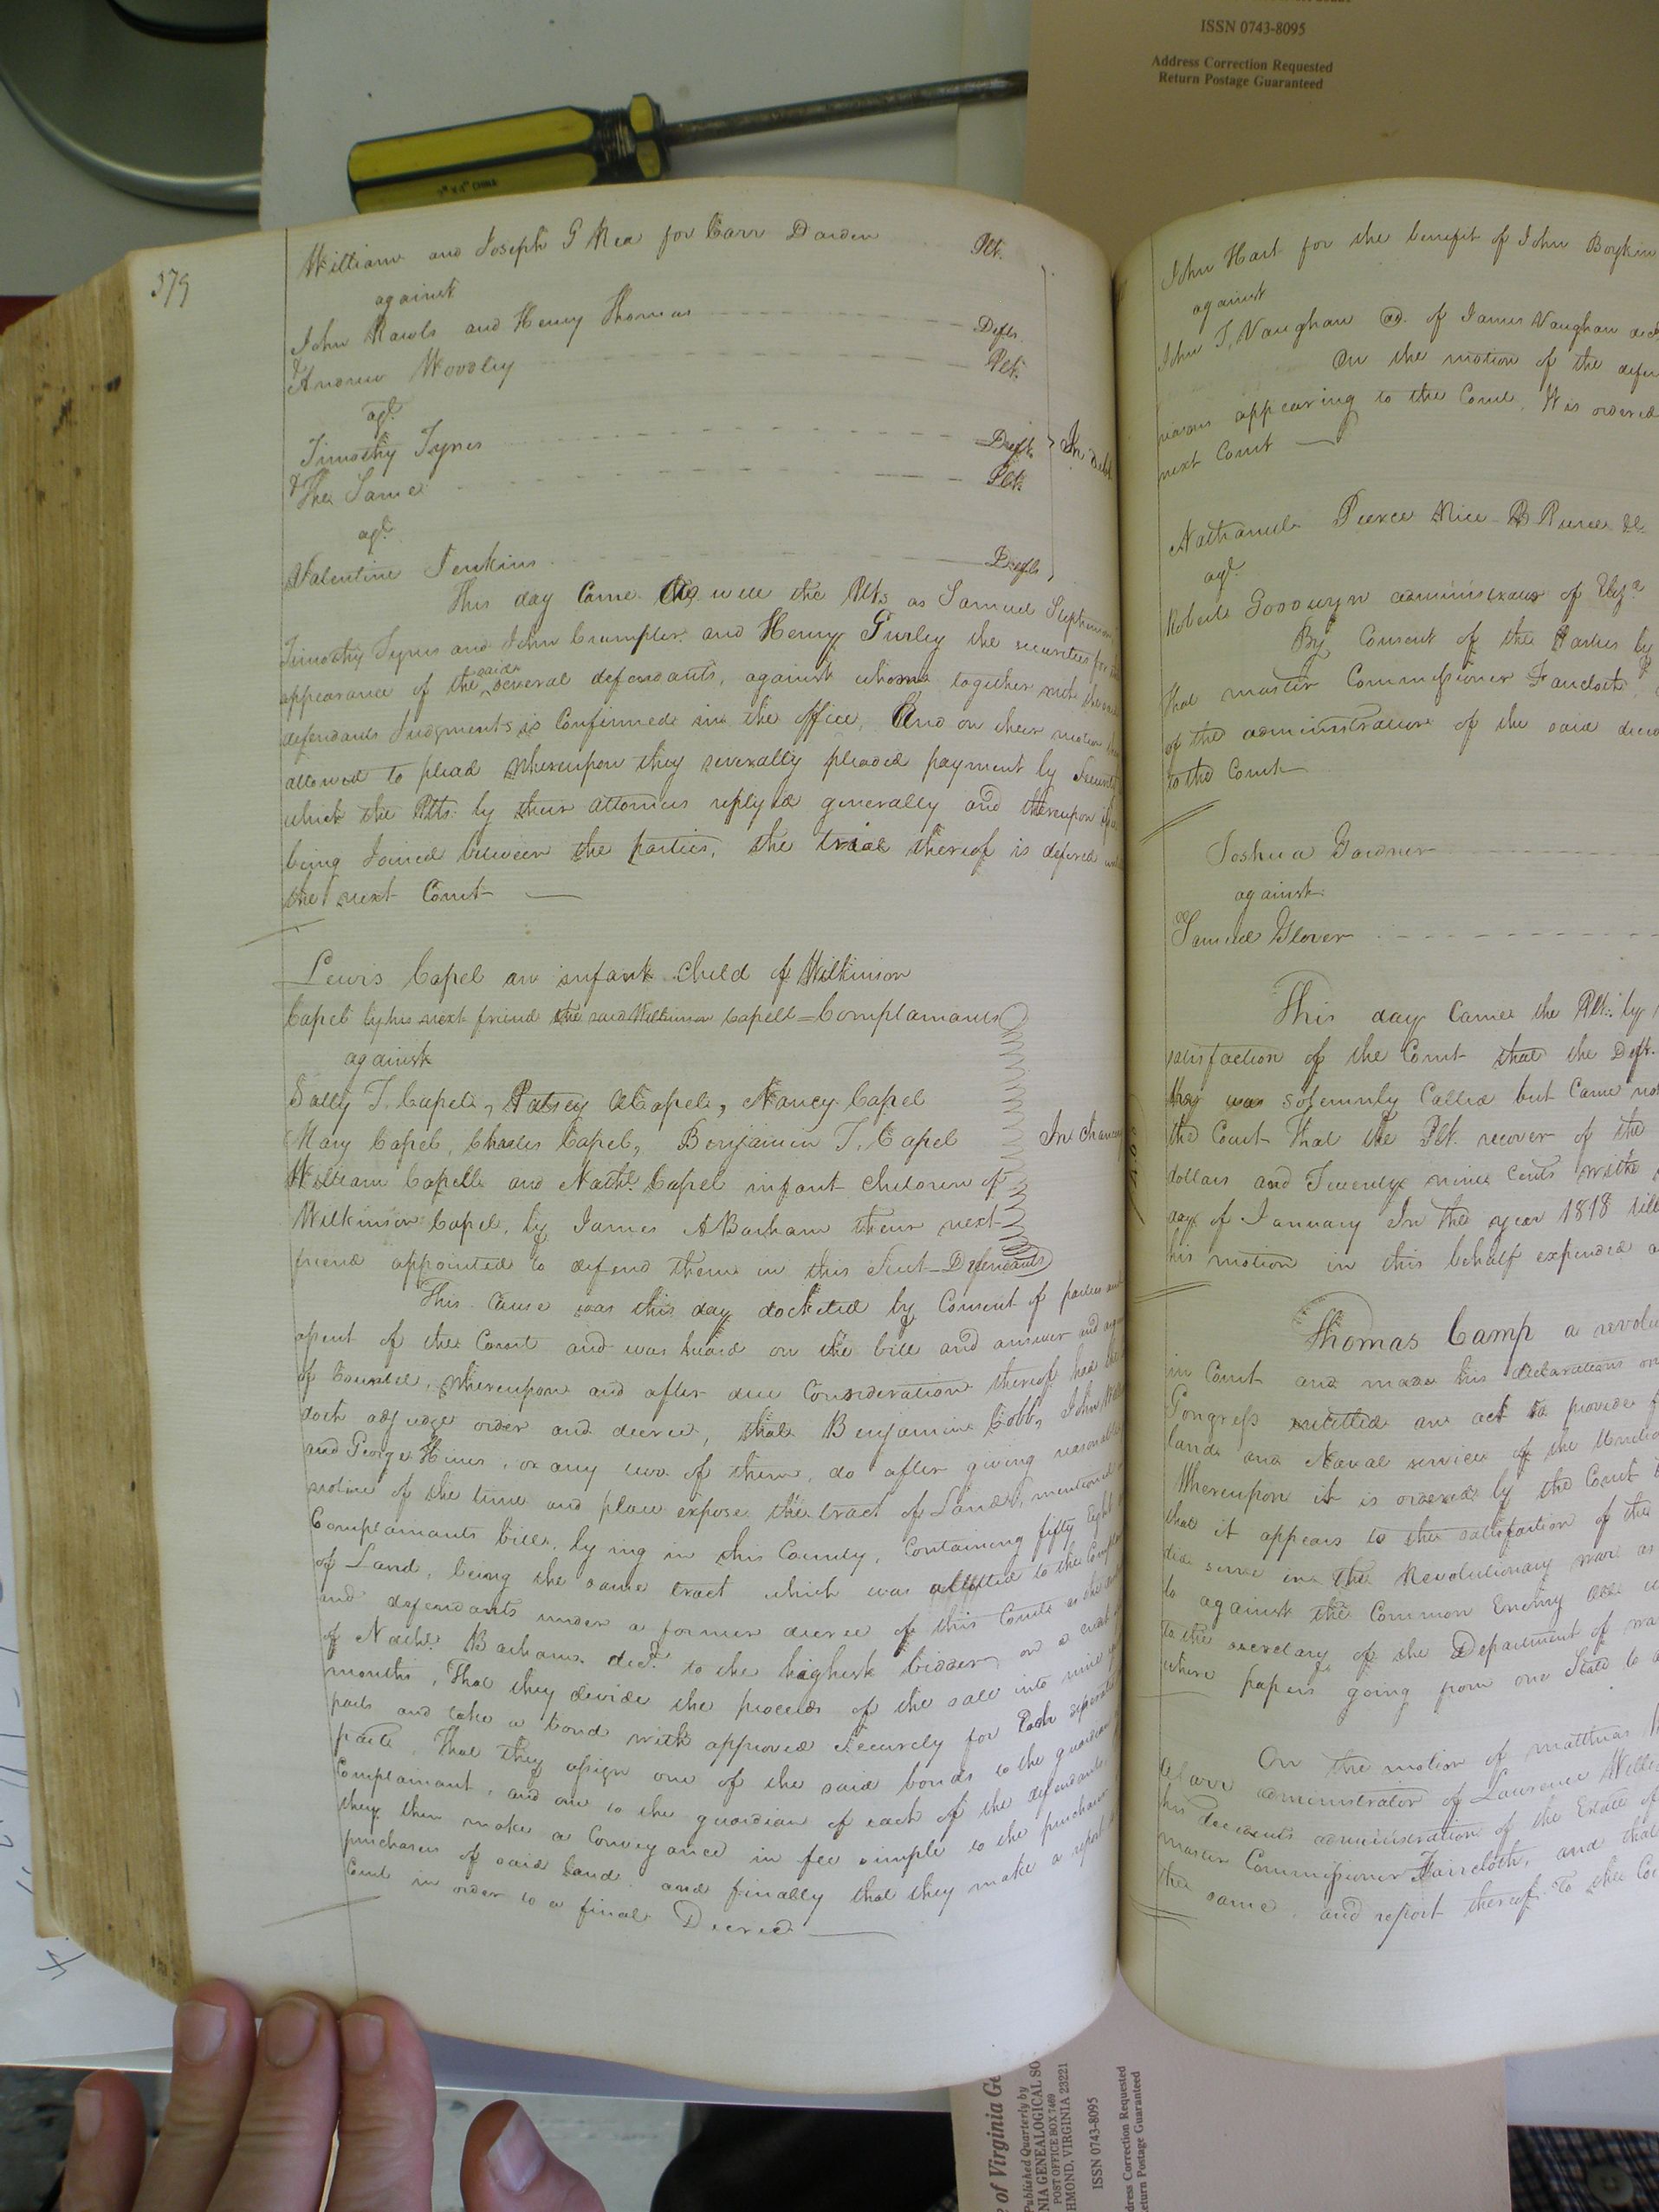 ISSN 0743-8095
Address Correction Requested
Return Postage Guaranteed
379
William and Joseph G Rea for Carr Darden Plt.
against
John Rawls and Henry Thomas Defts.
Andrew Woodley Plt.
agt.
Timothy Tynes Deft.
The Same Plt.
agt.
Valentine Jenkins Deft.
In debt
This day Came as well the Plts as Samuel Stephenson
Timothy Tynes and John Crumpler and Henry Gurley the securities for the
appearance of the said several defendants, against whom together with the said
defendants Judgments is Confirmed in the office, And on their motion
allowed to plead Whereupon they severally pleaded payment by
which the Plts. by their attornies replyed generally and thereupon
being Joined between the parties, the trial thereof is defered
the next Court
Lewis Capel an infant child of Wilkinson
Capel by his next friend the said Wilkinson Capell = Complainant
against
Sally T. Capel, Patsey Capel, Nancy Capel
Mary Capel, Charles Capel, Benjamin T. Capel
In Chancy
William Capell and Nathl. Capel infant children of
Wilkinson Capel, by James A Barham their next
friend appointed to defend them in this Suit Defendants
This Cause was this day docketed by Consent of parties and
assent of the Court and was heard on the bill and answer and
of Counsel, Whereupon and after due Consideration thereof had
doth adjudge order and decree, that Benjamin Cobb, John
and George Hines, or any two of them, do after giving reasonable
notice of the time and place expose the tract of Land mentioned
Complainants bill, lying in this County, Containing fifty Eight
of Land, being the same tract which was allotted to the
and defendants under a former decree of this Court
of Nathl. Barham decd. to the highest bidder, on a credit
months, That they devide the proceeds of the sale into nine
parts and take a bond with approved Security for Each seperate
part, That they assign one of the said bonds to the guardian
Complainant, and one to the guardian of each of the defendants
they then make a Conveyance in fee simple to the purchaser
purchasers of said land and finally that they make a report
Court in order to a final Decree
John Hart for the benefit of John Boykin
against
John T, Vaughan ad. of James Vaughan decd
On the motion of the
reasons appearing to the Court, It is ordered
next Court
Nathaniel Peirce
agt.
Robert Goodwyn of Eliza
By Consent of the Parties by
that master Commissioner Faircloth
of the administration of the said
to the Court
Joshua Gardner
against
Samuel Glover
This day Came the Plt. by
satisfaction of the Court that the Deft.
they was solemnly Called but Came not
the Court That the Plt. recover of the
dollars and Twenty nine Cents with
day of January In the year 1818 till
his motion in this behalf expended
Thomas Camp a
in Court and made his declaration on
Congress entitled an act to provide
land and Naval service of the
Whereupon it is ordered by the Court
that it appears to the satisfaction of the
did serve in the Revolutionary war as
to against the Common Enemy
to the secretary of the Department of war
where papers going from one State to
On the motion of
administrator of Lawrence
his decedents administration of the Estate of
master Commissioner Faircloth, and that
the same, and report thereof to the
of Virginia
Published Quarterly by
NIA GENEALOGICAL SO
POST OFFICE BOX 7469
HMOND, VIRGINIA 23221
ISSN 0743-8095
dress Correction Requested
eturn Postage Guaranteed